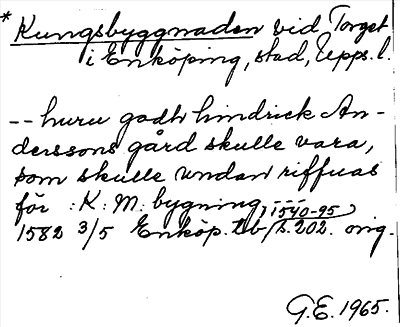 * Kungsbyggnaden vid Torget
i Enköping, stad, Upps. l.
-- huru godh hindrick An-
derssons gård skulle vara,
som skulle undan riffuas
för :K: M: bygning,
1582 3/5 Enköp. tb 1540-95 s. 202. orig.
G.E. 1965.